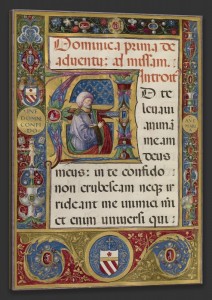 Dominica prima de
aduentu: ad missam.
Introit
te
leuaui
animā
meam
deus
meus: in te confido
non erubescam neq; ir
rideant me inimici mei
et enim uniuersi qui